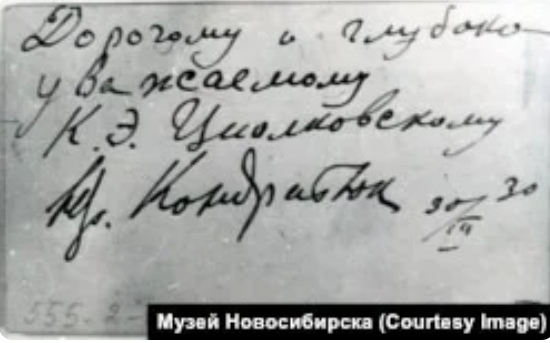 Дорогому и глубоко
уважаемому
К. Э. Циолковскому
Юр. Кондратюк 30/IV 30
555-2-
Музей Новосибирска (Courtesy Image)